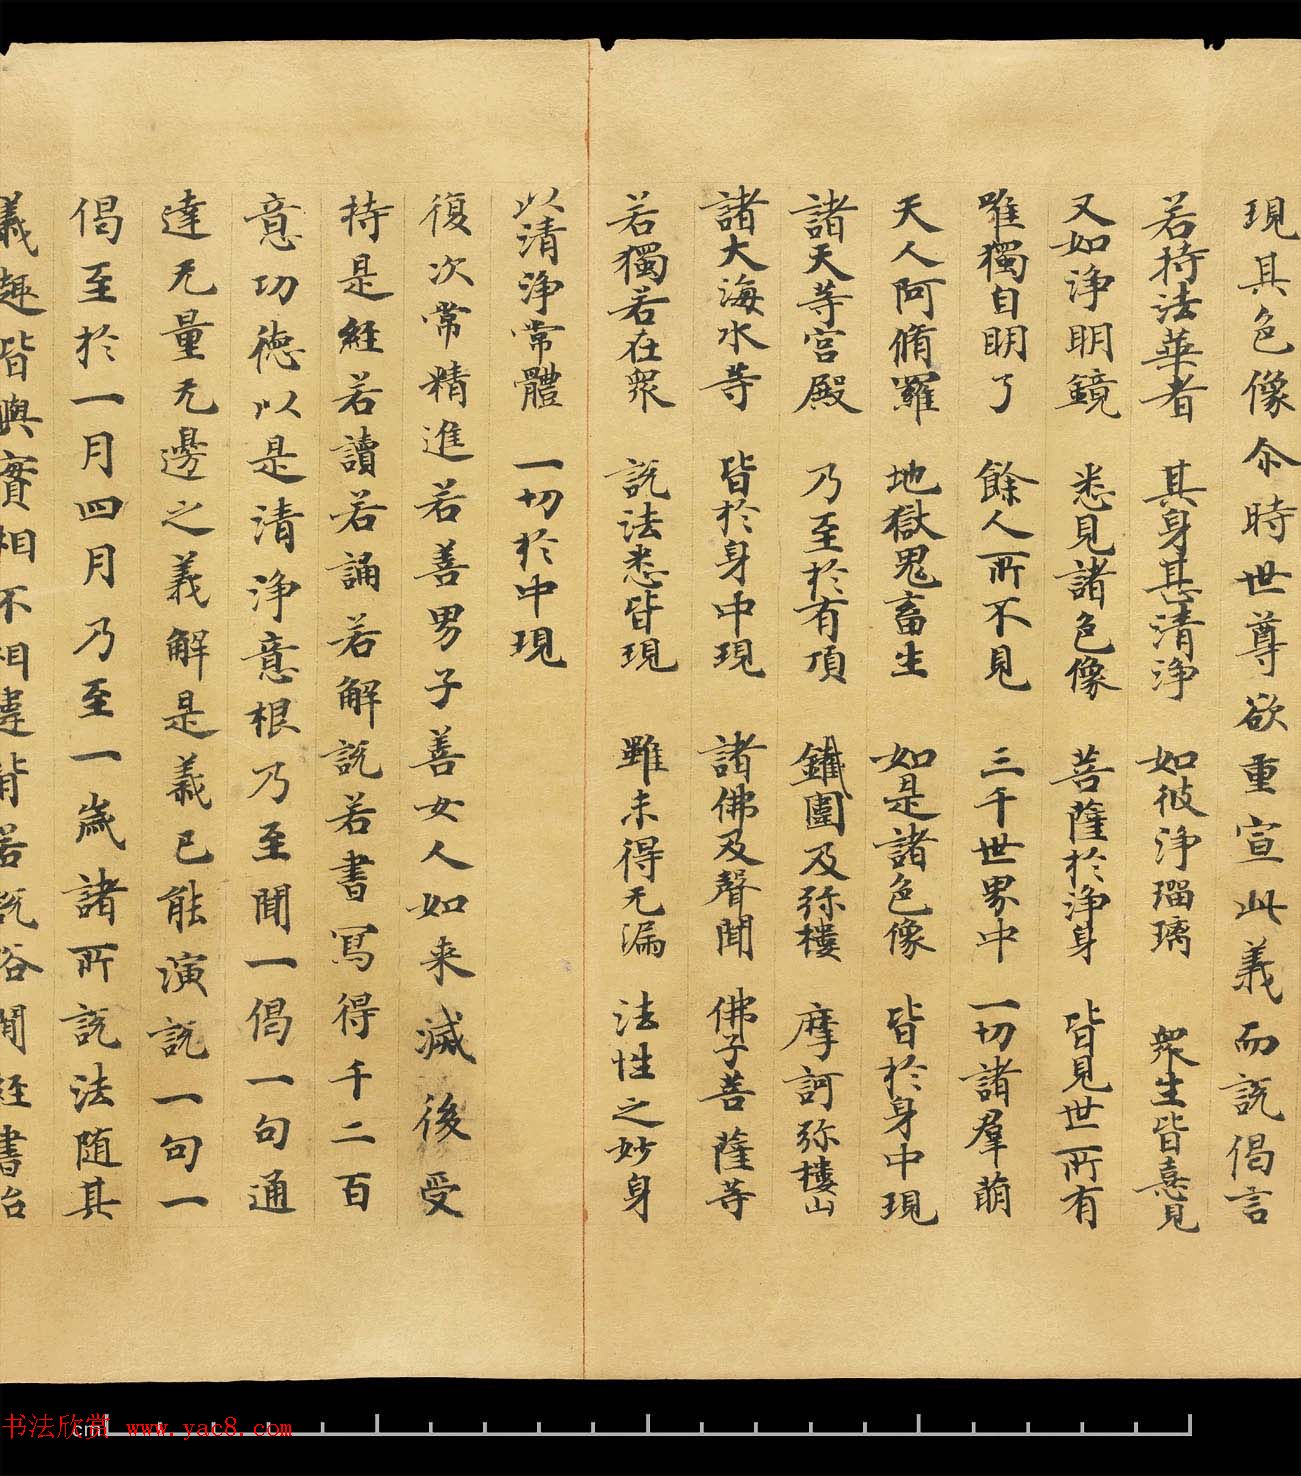 現其色像尒時世尊欲重宣此義而説偈言
若持法華者 其身甚清淨 如彼淨瑠璃 衆生皆憙見
又如淨明鏡 悉見諸色像 菩薩於淨身 皆見世所有
唯獨自明了 餘人所不見 三千世界中 一切諸羣萠
天人阿脩羅 地獄鬼畜生 如是諸色像 皆於身中現
諸天等宫殿 乃至於有頂 鐵圍及弥樓 摩訶弥樓山
諸大海水等 皆於身中現 諸佛及聲聞 佛子菩薩等
若獨若在衆 説法悉皆現 雖未得无漏 法性之妙身
以清淨常體 一切於中現
復次常精進若善男子善女人如来滅後受
持是経若讀若誦若解説若書冩得千二百
意功徳以是清淨意根乃至聞一偈一句通
達无量无邊之義解是義已能演説一句一
偈至於一月四月乃至一歲諸所説法随其
義趣皆與實相不相違背若説俗間経書治
书法欣赏 www.yac8.com
cm